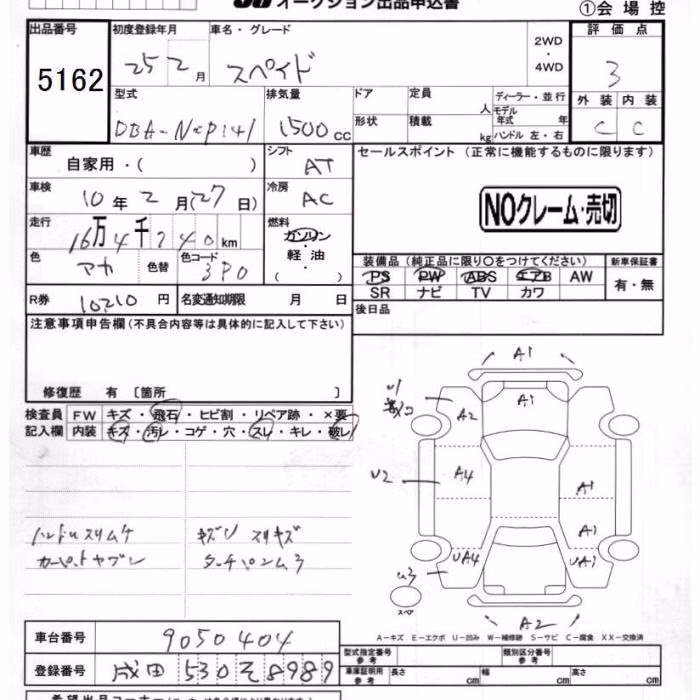 オークション出品申込書
①会場控
出品番号
5162
初度登録年月
25 2 月
車名・グレード
スペイド
2WD
・
4WD
評価点
3
型式
DBA-NCP141
排気量
1500cc
ドア
形状
定員 人
積載 kg
ディーラー・並行
モデル年式 年
ハンドル 左・右
外装 内装
C C
車歴
自家用・( )
シフト
AT
セールスポイント (正常に機能するものに限ります)
NOクレーム・売切
車検
10年2月(27日)
冷房
AC
走行
16万4千240km
燃料
ガソリン
・
軽油
( )
色
アカ
色替
色コード
3P0
装備品 (純正品に限り○をつけてください)
PS PW ABS エアB AW
SR ナビ TV カワ
新車保証書
有・無
R券 10210円
名変通知期限 月 日
後日品
注意事項申告欄(不具合内容等は具体的に記入して下さい)
修復歴 有 〔箇所 〕
検査員 FW キズ・飛石・ヒビ割・リペア跡・×要
記入欄 内装 キズ・汚レ・コゲ・穴・スレ・キレ・破レ
ハンドルスリムケ
カーペットヤブレ
キズU スリキズ
タッチペン
A1
A1
A2
U2
A4
A1
A1
UA4
UA1
A2
スペア
A-キズ E-エクボ U-凹み W-補修跡 S-サビ C-腐食 XX-交換済
車台番号
9050404
登録番号
成田 530 そ 8989
型式指定番号
参考
類別区分番号
参考
車庫証明用
参考
長さ cm
幅 cm
高さ cm